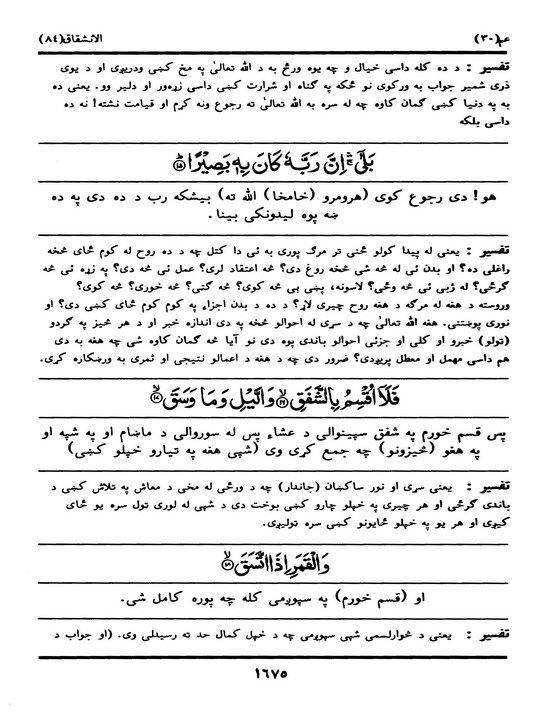 عم(۳۰) الانشقاق(۸٤)
تفسیر : د ده کله داسې خیال و چه یوه ورځ به د الله تعالیٰ په مخ کښې ودریږي او د یوې
ذرې شمیر جواب به ورکوي نو ځکه په گناه او شرارت کښې داسې زړه‌ور او دلیر وو. یعنې ده
به په دنیا کښې گمان کاوه چه له سره به الله تعالیٰ ته رجوع ونه کړم او قیامت نشته! نه ده
داسې بلکه
بَلٰۤى ۛۚ اِنَّ رَبَّهٗ كَانَ بِهٖ بَصِيْرًا ۱۵
هو! دی رجوع کوي (هرومرو (خامخا) الله ته) بیشکه رب د ده دی په ده
ښه پوه لیدونکی بینا.
تفسیر : یعنې له پیدا کولو ځنې تر مرگ پورې به ئې دا کتل چه د ده روح له کوم ځای څخه
راغلی ده؟ او بدن ئې له څه شي څخه روغ دی؟ څه اعتقاد لري؟ عمل ئې څه دی؟ په زړه ئې څه
گرځي؟ له ژبې ئې څه وځي؟ لاسونه، پښې ئې څه کوي؟ څه گټي؟ څه خوري؟ څه کوي؟
وروسته د هغه له مرگه د هغه روح چیرې لاړ؟ د ده د بدن اجزاء په کوم کوم ځای کښې دي؟ او
نورې پوښتنې. هغه الله تعالیٰ چه د سړي له احوالو څخه په دې اندازه خبر او د هر څیز په گردو
(ټولو) خبرو او کلي او جزئي احوالو باندې پوه دی نو آیا څه گمان کاوه شي چه هغه به دی
هم داسې مهمل او معطل پریږدي؟ ضرور دی چه د هغه د اعمالو نتیجې او ثمرې به ورښکاره کړي.
فَلَاۤ اُقْسِمُ بِالشَّفَقِ ۱۶ وَالَّيْلِ وَمَا وَسَقَ ۱۷
پس قسم خورم په شفق سپینوالي د عشاء پس له سوروالي د ماښام او په شپه او
په هغو (څیزونو) چه جمع کړي وي (شپې هغه په تیارو خپلو کښې)
تفسیر : یعنې سړي او نور ساکښان (جاندار) چه د ورځې له مخې د معاش په تلاش کښې د
باندې گرځي او هر چیرې په خپلو چارو کښې بوخت دي د شپې له لوري ټول سره یو ځای
کیږي او هر یو په خپلو ځایونو کښې سره ټولیږي.
وَالْقَمَرِ اِذَا اتَّسَقَ ۱۸
او (قسم خورم) په سپوږمۍ کله چه پوره کامل شي.
تفسیر : یعنې د څوارلسمې شپې سپوږمۍ چه د خپل کمال حد ته رسیدلې وي. (او جواب د
۱۶۷۵